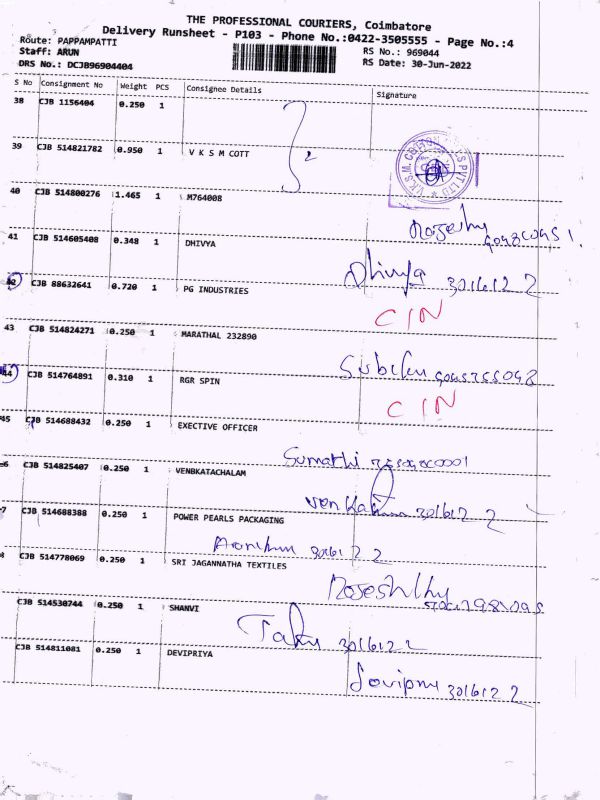 THE PROFESSIONAL COURIERS, Coimbatore
Delivery Runsheet - P103 - Phone No.:0422-3505555 - Page No.:4
Route: PAPPAMPATTI
RS No.: 969044
Staff: ARUN
RS Date: 30-Jun-2022
DRS No.: DCJB96904404
S No Consignment No Weight PCS Consignee Details Signature
38 CJB 1156404 0.250 1
39 CJB 514821782 0.950 1 V K S M COTT
40 CJB 514800276 1.465 1 M764008
41 CJB 514605408 0.348 1 DHIVYA
Dhivya 301612 2
42 CJB 88632641 0.720 1 PG INDUSTRIES
CIN
43 CJB 514824271 0.250 1 MARATHAL 232890
44 CJB 514764891 0.310 1 RGR SPIN
CIN
45 CJB 514688432 0.250 1 EXECTIVE OFFICER
Sumathi
6 CJB 514825407 0.250 1 VENBKATACHALAM
301612 2
7 CJB 514688388 0.250 1 POWER PEARLS PACKAGING
301612 2
8 CJB 514778069 0.250 1 SRI JAGANNATHA TEXTILES
CJB 514530744 0.250 1 SHANVI
301612 2
CJB 514811081 0.250 1 DEVIPRIYA
301612 2